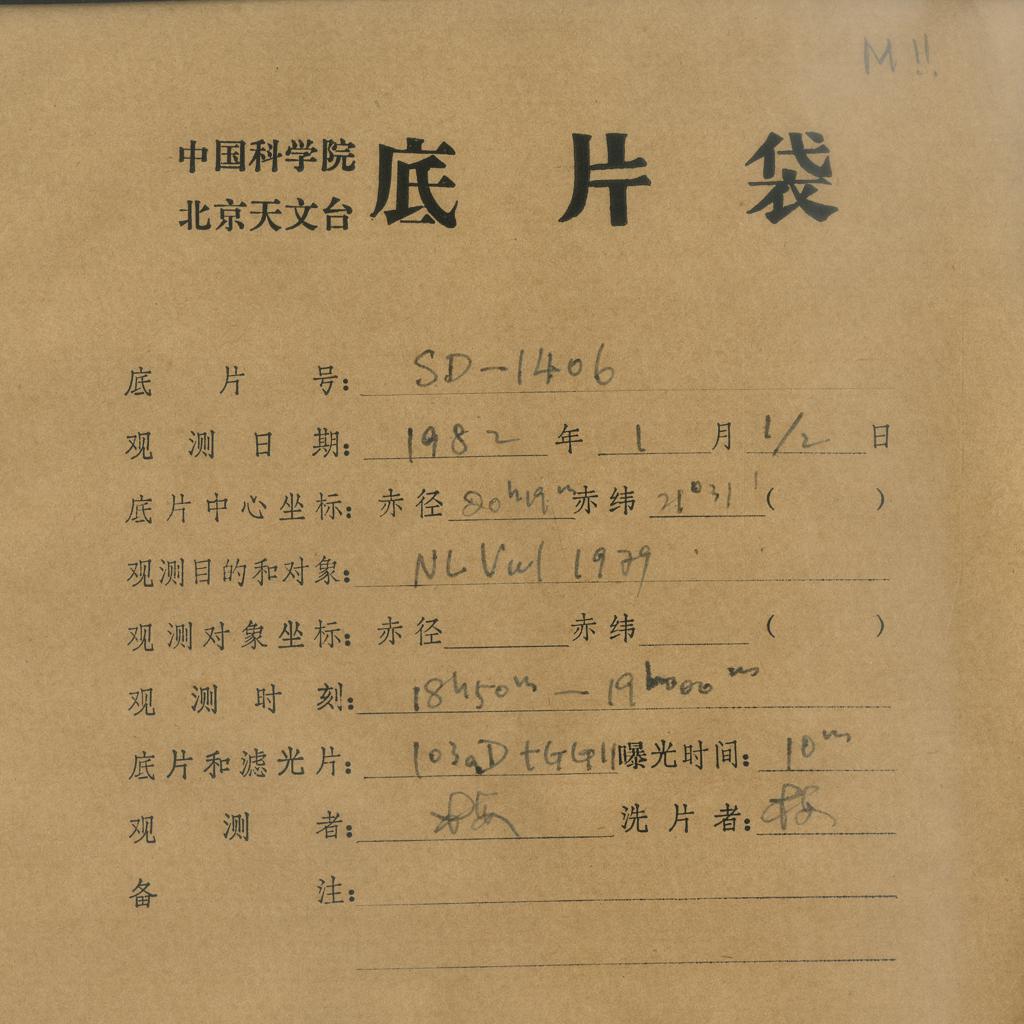 M !!
中国科学院
北京天文台
底片袋
底片号：SD-1406
观测日期：1982年1月1/2日
底片中心坐标：赤径20h19m赤纬21°31'（ ）
观测目的和对象：NL Vul 1979
观测对象坐标：赤径 赤纬 （ ）
观测时刻：18h50m — 19h00m
底片和滤光片：103aD+GG11曝光时间：10m
观测者： 洗片者：
备注：